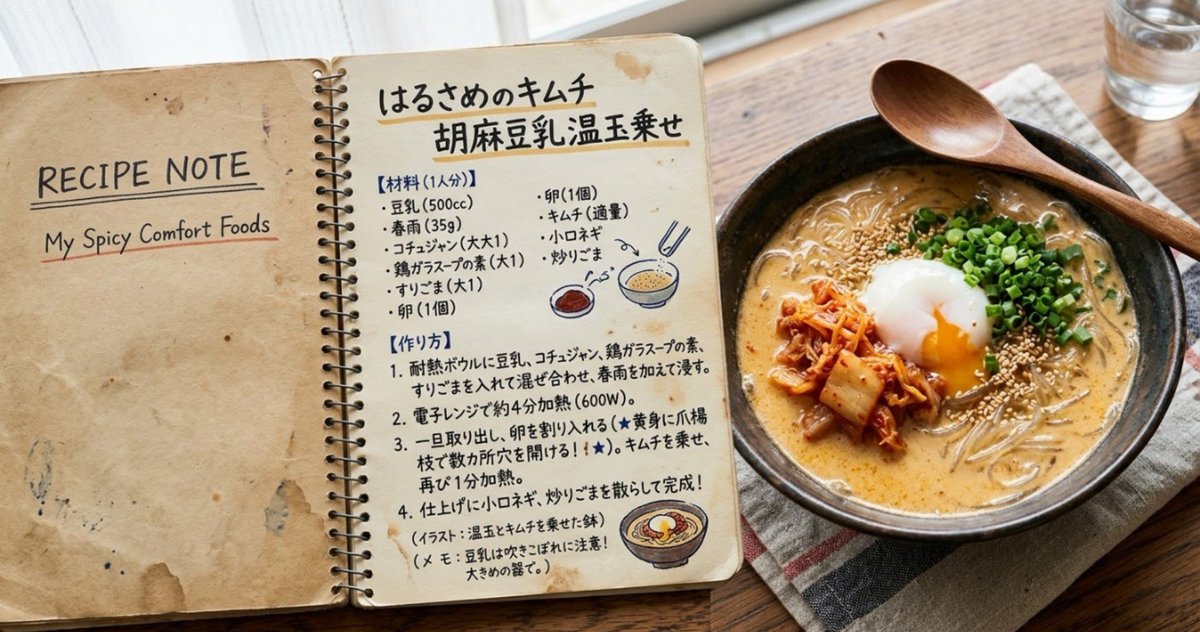 RECIPE NOTE
My Spicy Comfort Foods
はるさめのキムチ
胡麻豆乳温玉乗せ
【材料(1人分)】
・豆乳(500cc)
・春雨(35g)
・コチュジャン(大大1)
・鶏ガラスープの素(大1)
・すりごま(大1)
・卵(1個)
・卵(1個)
・キムチ(適量)
・小口ネギ
・炒りごま
【作り方】
1. 耐熱ボウルに豆乳、コチュジャン、鶏ガラスープの素、
すりごまを入れて混ぜ合わせ、春雨を加えて浸す。
2. 電子レンジで約4分加熱(600W)。
3. 一旦取り出し、卵を割り入れる(★黄身に爪楊
枝で数カ所穴を開ける!★)。キムチを乗せ、
再び1分加熱。
4. 仕上げに小口ネギ、炒りごまを散らして完成!
(イラスト:温玉とキムチを乗せた鉢)
(メモ:豆乳は吹きこぼれに注意!
大きめの器で。)